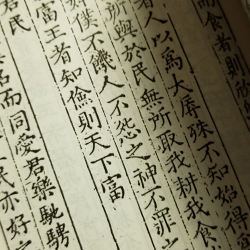 而食者則所
者人以為大辱殊不知始得
所與於民無所取我耕我食
僕不饑人不怨之神不罪之
富王者知儉則天下富
君民
名而同愛君樂馳騁
民亦好